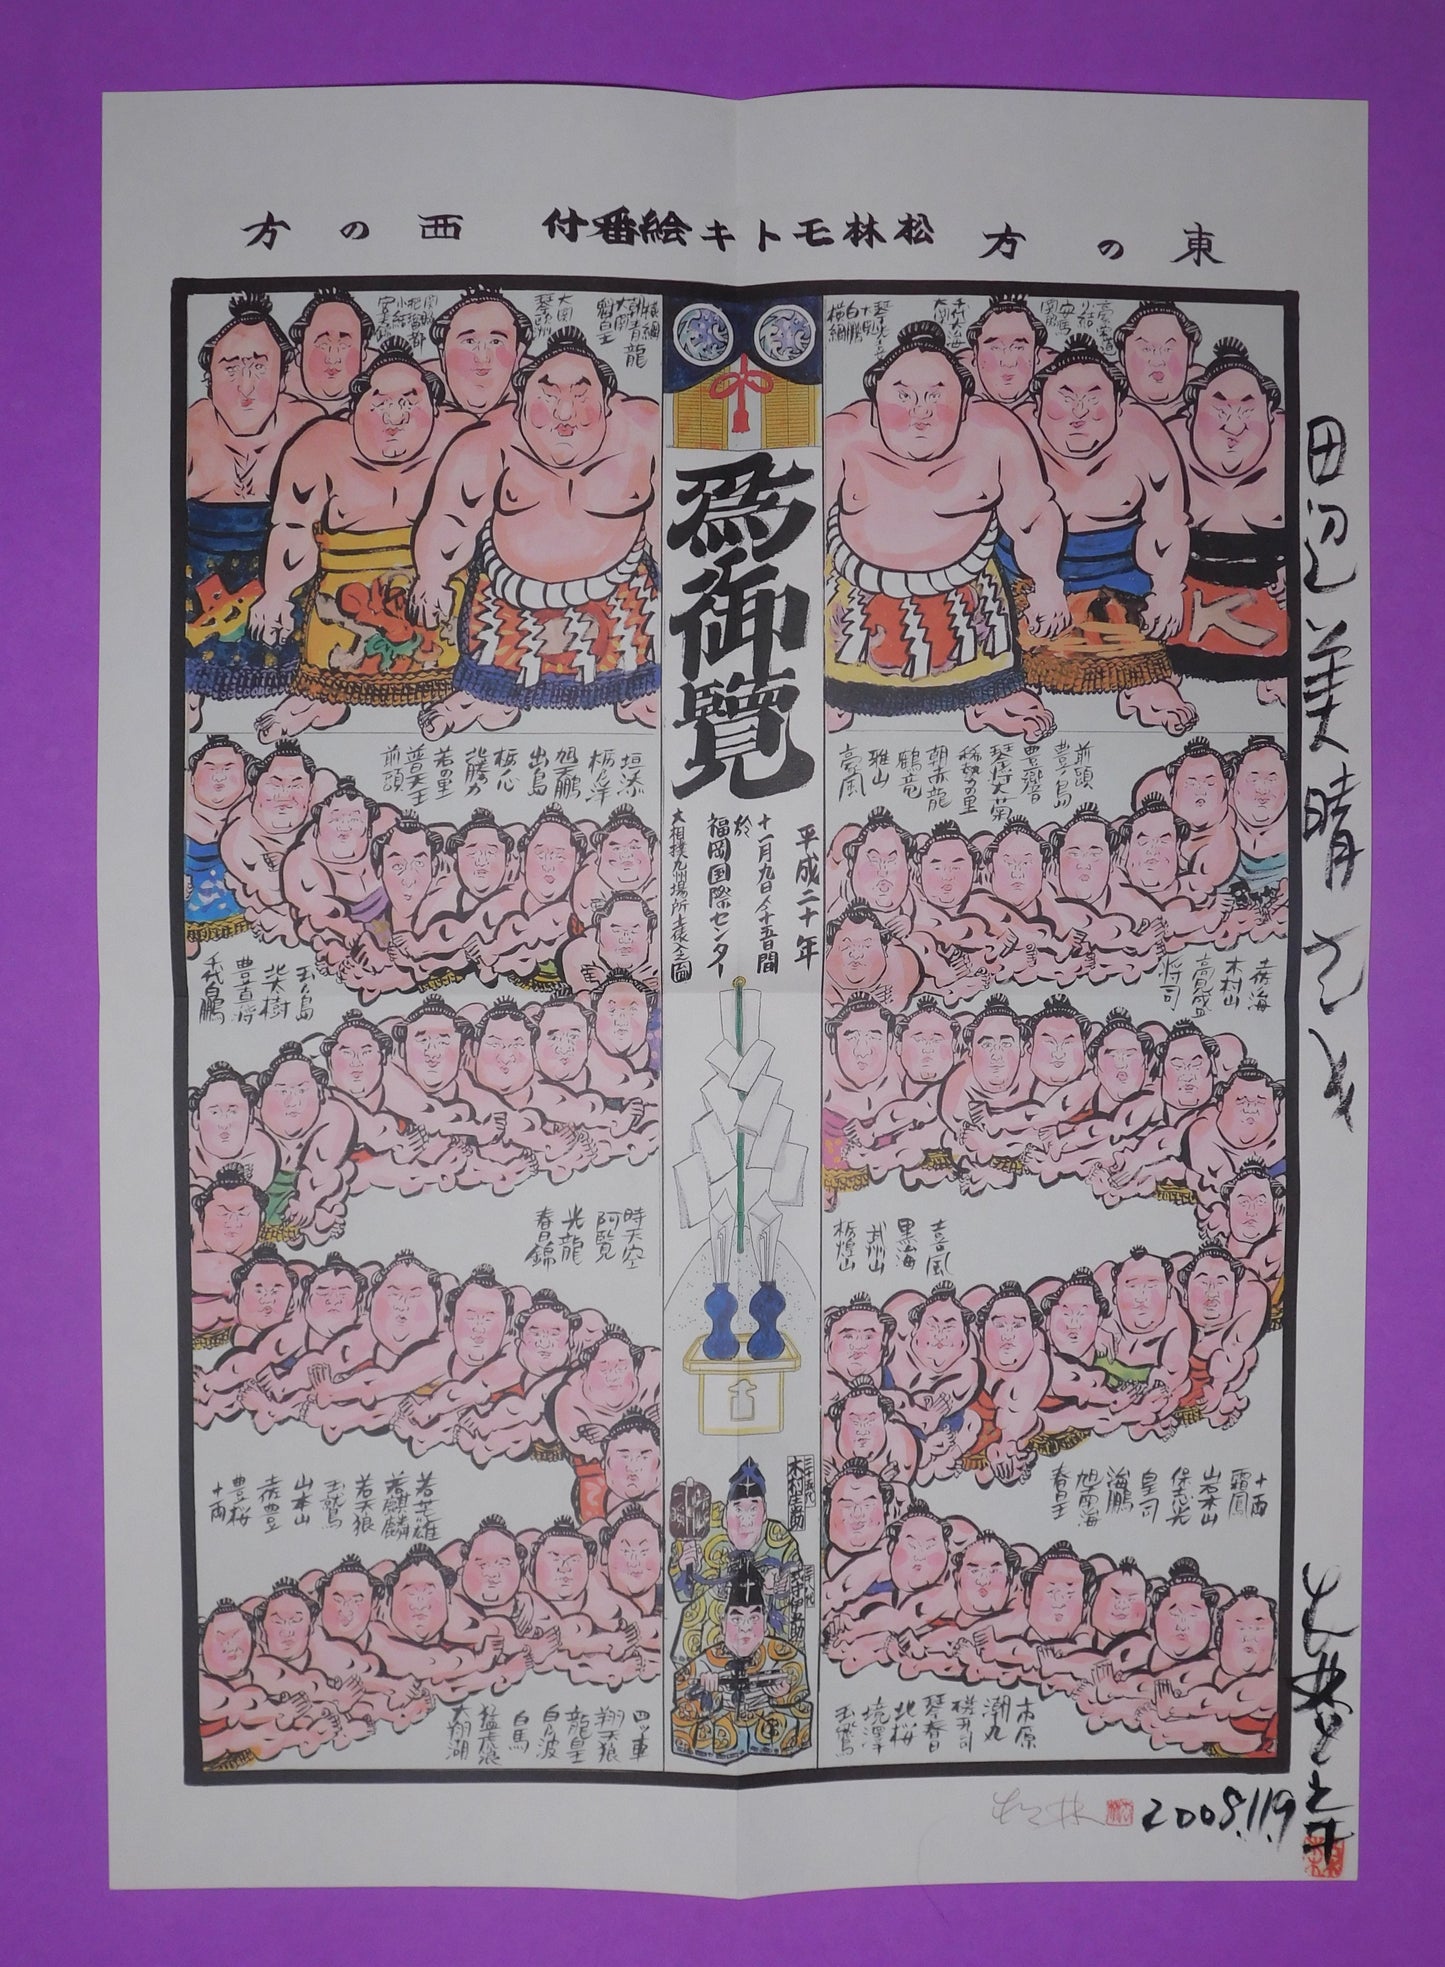 東の方
松林モトキ絵番付
西の方
横綱
白鵬
千代大海
大関
安馬
関脇
小結
豪栄道
横綱
朝青龍
大関
魁皇
大関
琴欧洲
関脇
把瑠都
小結
安美錦
為御覧
平成二十年
十一月九日より十五日間
於
福岡国際センター
大相撲九州場所土俵入之図
前頭
豊ノ島
豊響
琴奨菊
稀勢の里
朝赤龍
鶴竜
雅山
豪風
垣添
栃乃洋
旭天鵬
出島
栃ノ心
北勝力
若の里
普天王
前頭
土佐海
木村山
高見盛
将司
玉ノ島
北太樹
豊真将
千代白鵬
嘉風
黒海
武州山
栃煌山
時天空
阿覧
光龍
春日錦
十両
霜鳳
岩木山
保志光
皇司
海鵬
旭南海
春日王
若荒雄
若麒麟
若天狼
玉鷲
山本山
土佐豊
豊桜
十両
三十五代
木村庄之助
三十八代
式守伊之助
市原
潮丸
磋牙司
琴春日
北桜
境澤
玉飛鳥
四ツ車
翔天狼
龍皇
白乃波
白馬
猛虎浪
大翔湖
田辺美晴さん
松林
2008.11.9